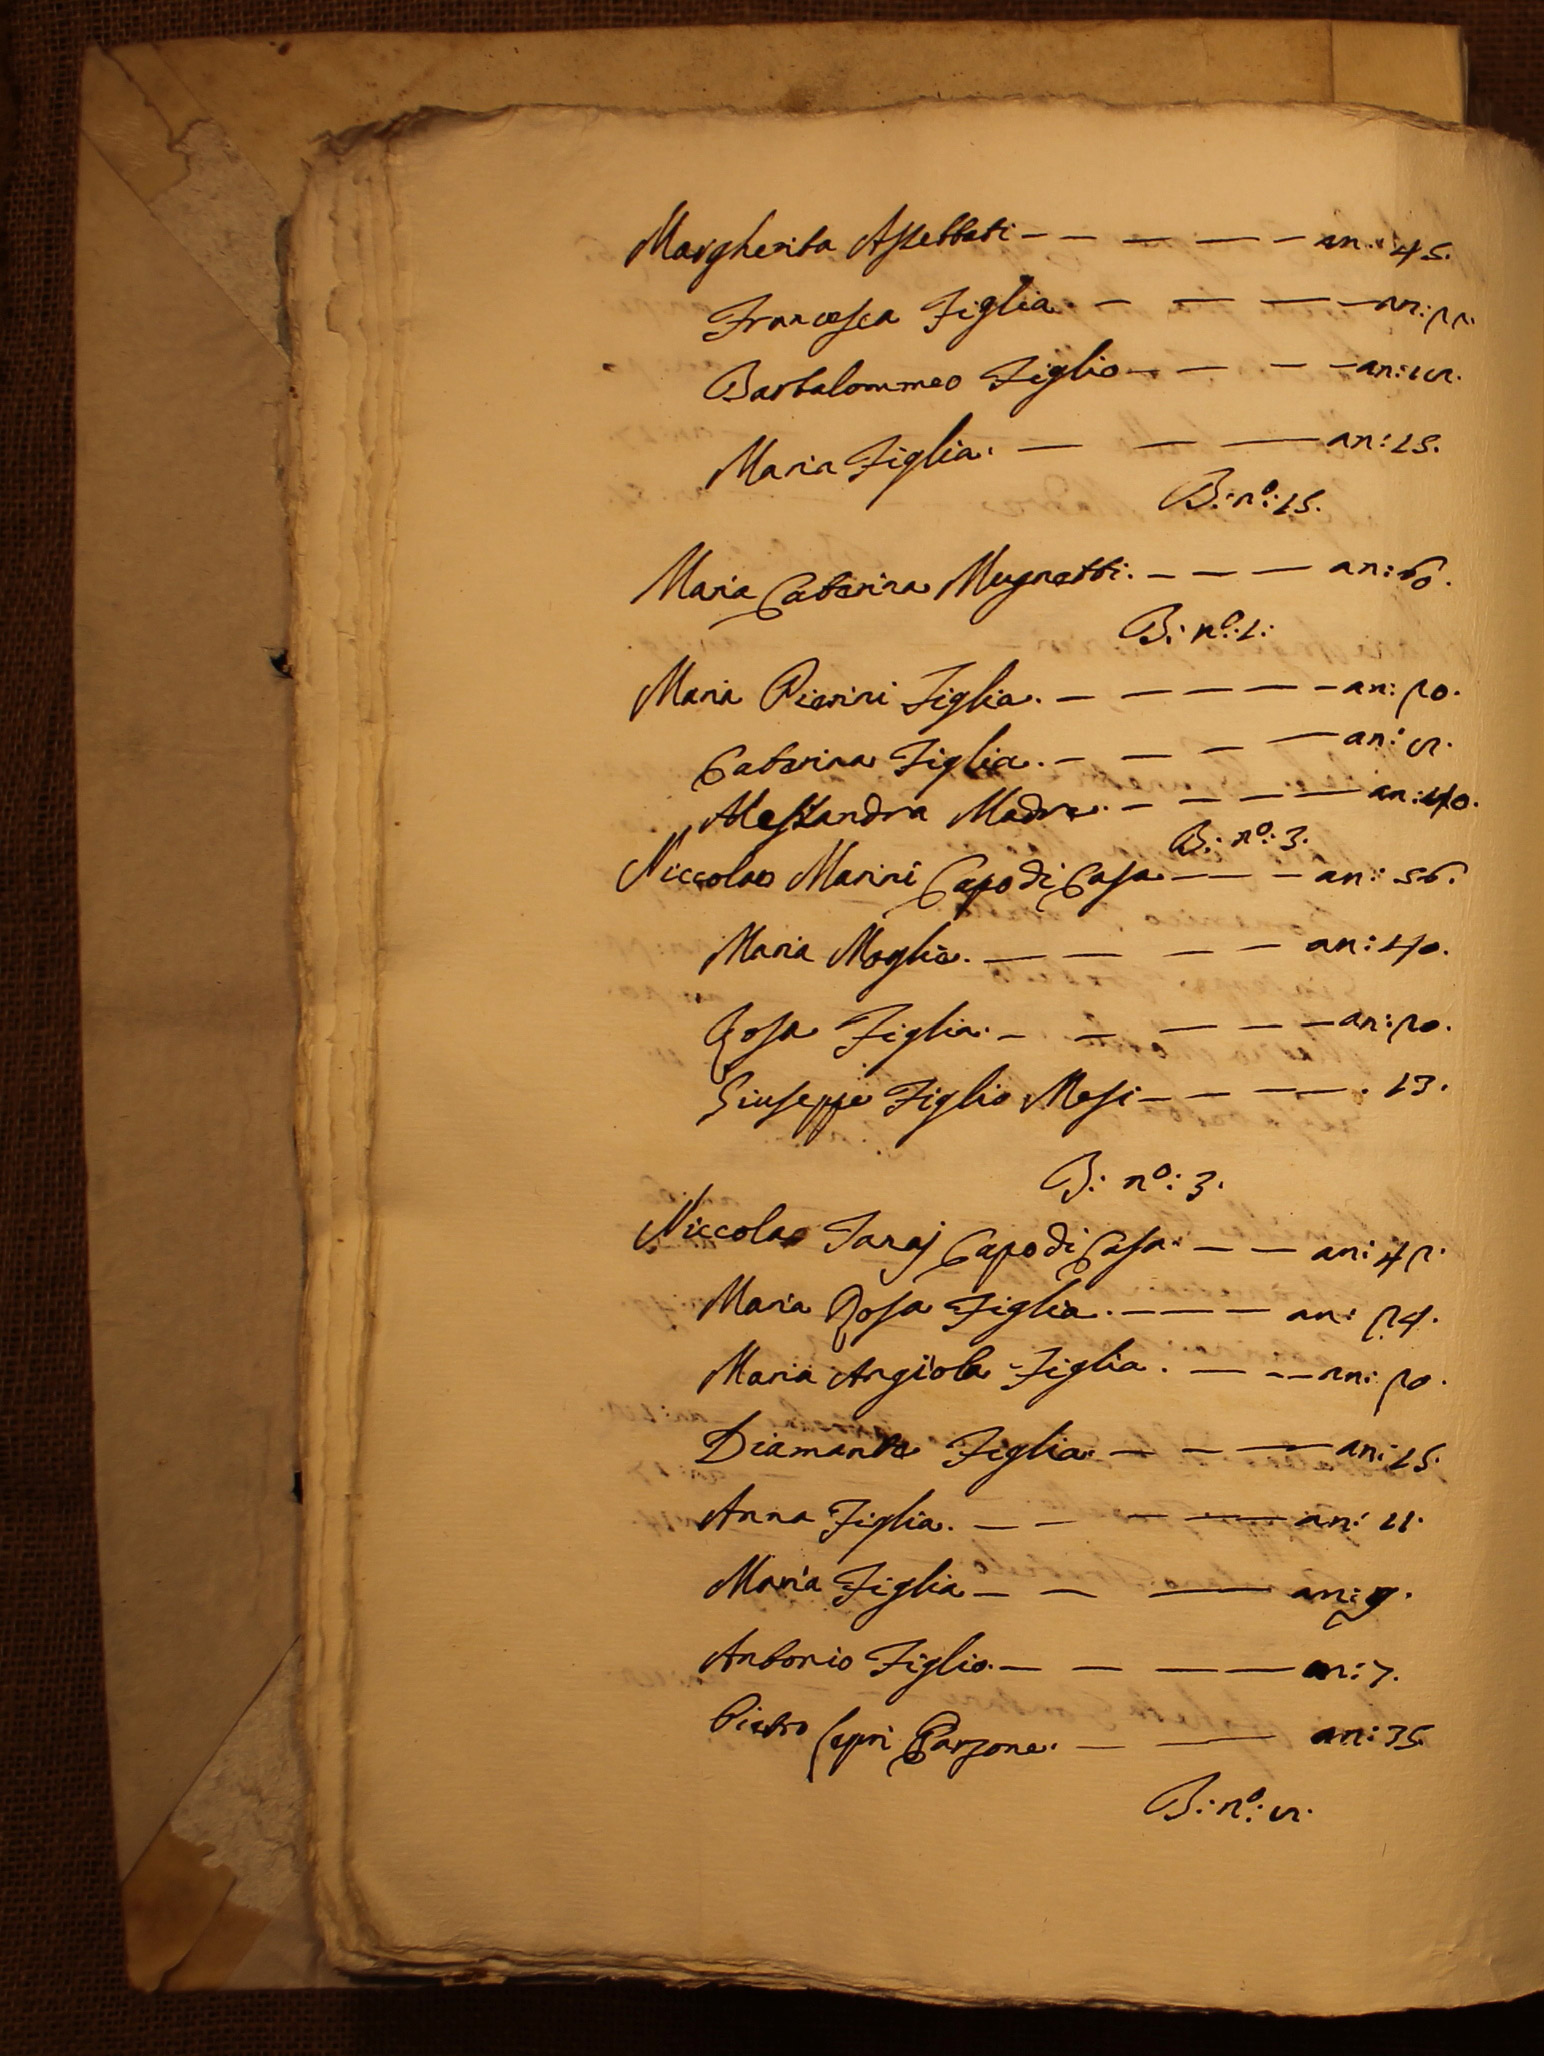 Margherita Assettati — — — — — an: 45.
Francesca Figlia — — — — an: 22.
Bartolommeo Figlio — — — — an:
Maria Figlia. — — — an: 15.
B: nº: 15.
Maria Caterina Mugnetti. — — — an: 60.
B: nº: 1:
Maria Pierini Figlia. — — — — — an: 20.
Caterina Figlia. — — — — an:
Alessandra Madre. — — — — an: 40.
B: nº: 3.
Niccolao Marini Capo di Casa — — — an: 56.
Maria Moglie. — — — — an: 40.
Rosa Figlia. — — — — — an: 20.
Giuseppe Figlio Mesi — — — — . 13.
B: nº: 3.
Niccolao Capo di Casa. — — an: 42.
Maria Rosa Figlia. — — — an: 24.
Maria Angiola Figlia. — — — an: 20.
Diamante Figlia. — — — an: 15.
Anna Figlia. — — — — an: 11.
Maria Figlia — — — an: 9.
Antonio Figlio. — — — an: 7.
Pietro Garzone. — — an: 35.
B: nº: